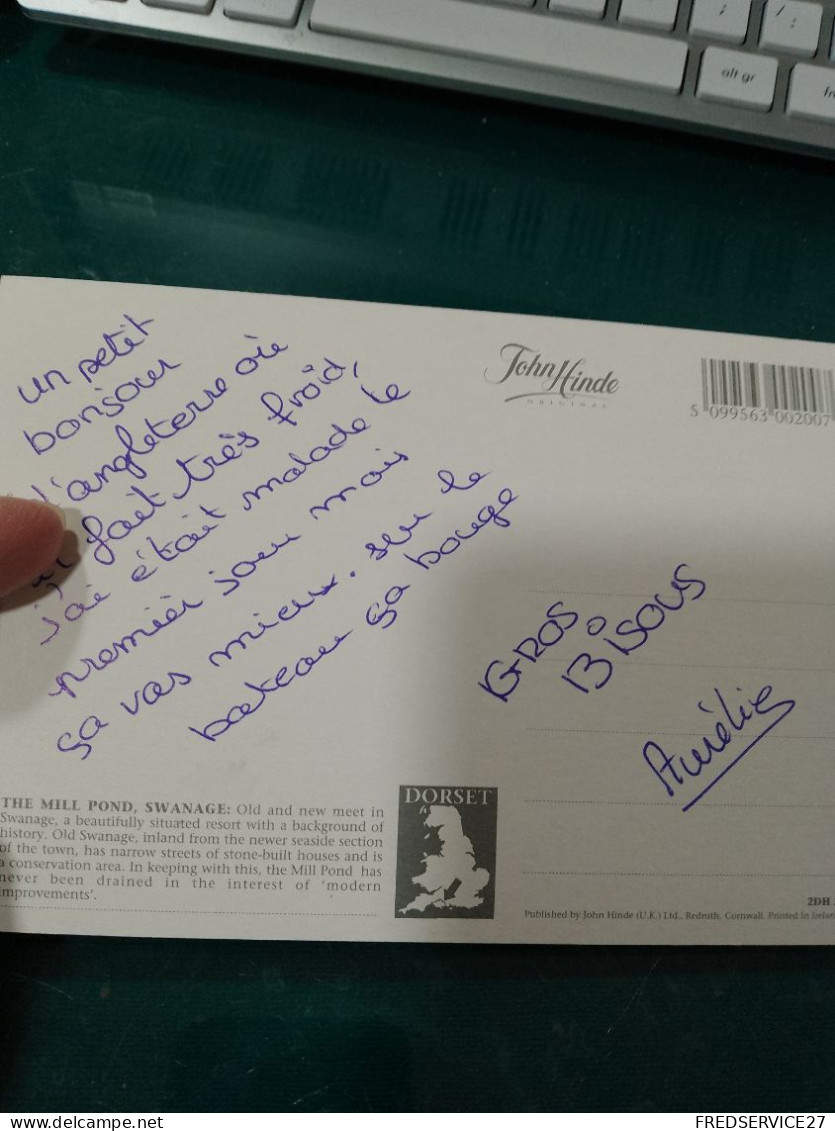 un petit
bonjour
d'angleterre où
il fait très froid,
j'ai était malade le
premier jour mais
sa vas mieux. sur le
bateau sa bouge
GROS
BISOUS
Aurélie
John Hinde
ORIGINAL
5 099563 002007
THE MILL POND, SWANAGE: Old and new meet in
Swanage, a beautifully situated resort with a background of
history. Old Swanage, inland from the newer seaside section
of the town, has narrow streets of stone-built houses and is
a conservation area. In keeping with this, the Mill Pond has
never been drained in the interest of 'modern
improvements'.
DORSET
2DH
Published by John Hinde (U.K.) Ltd., Redruth, Cornwall. Printed in Irelan
alt gr
fn
FREDSERVICE27